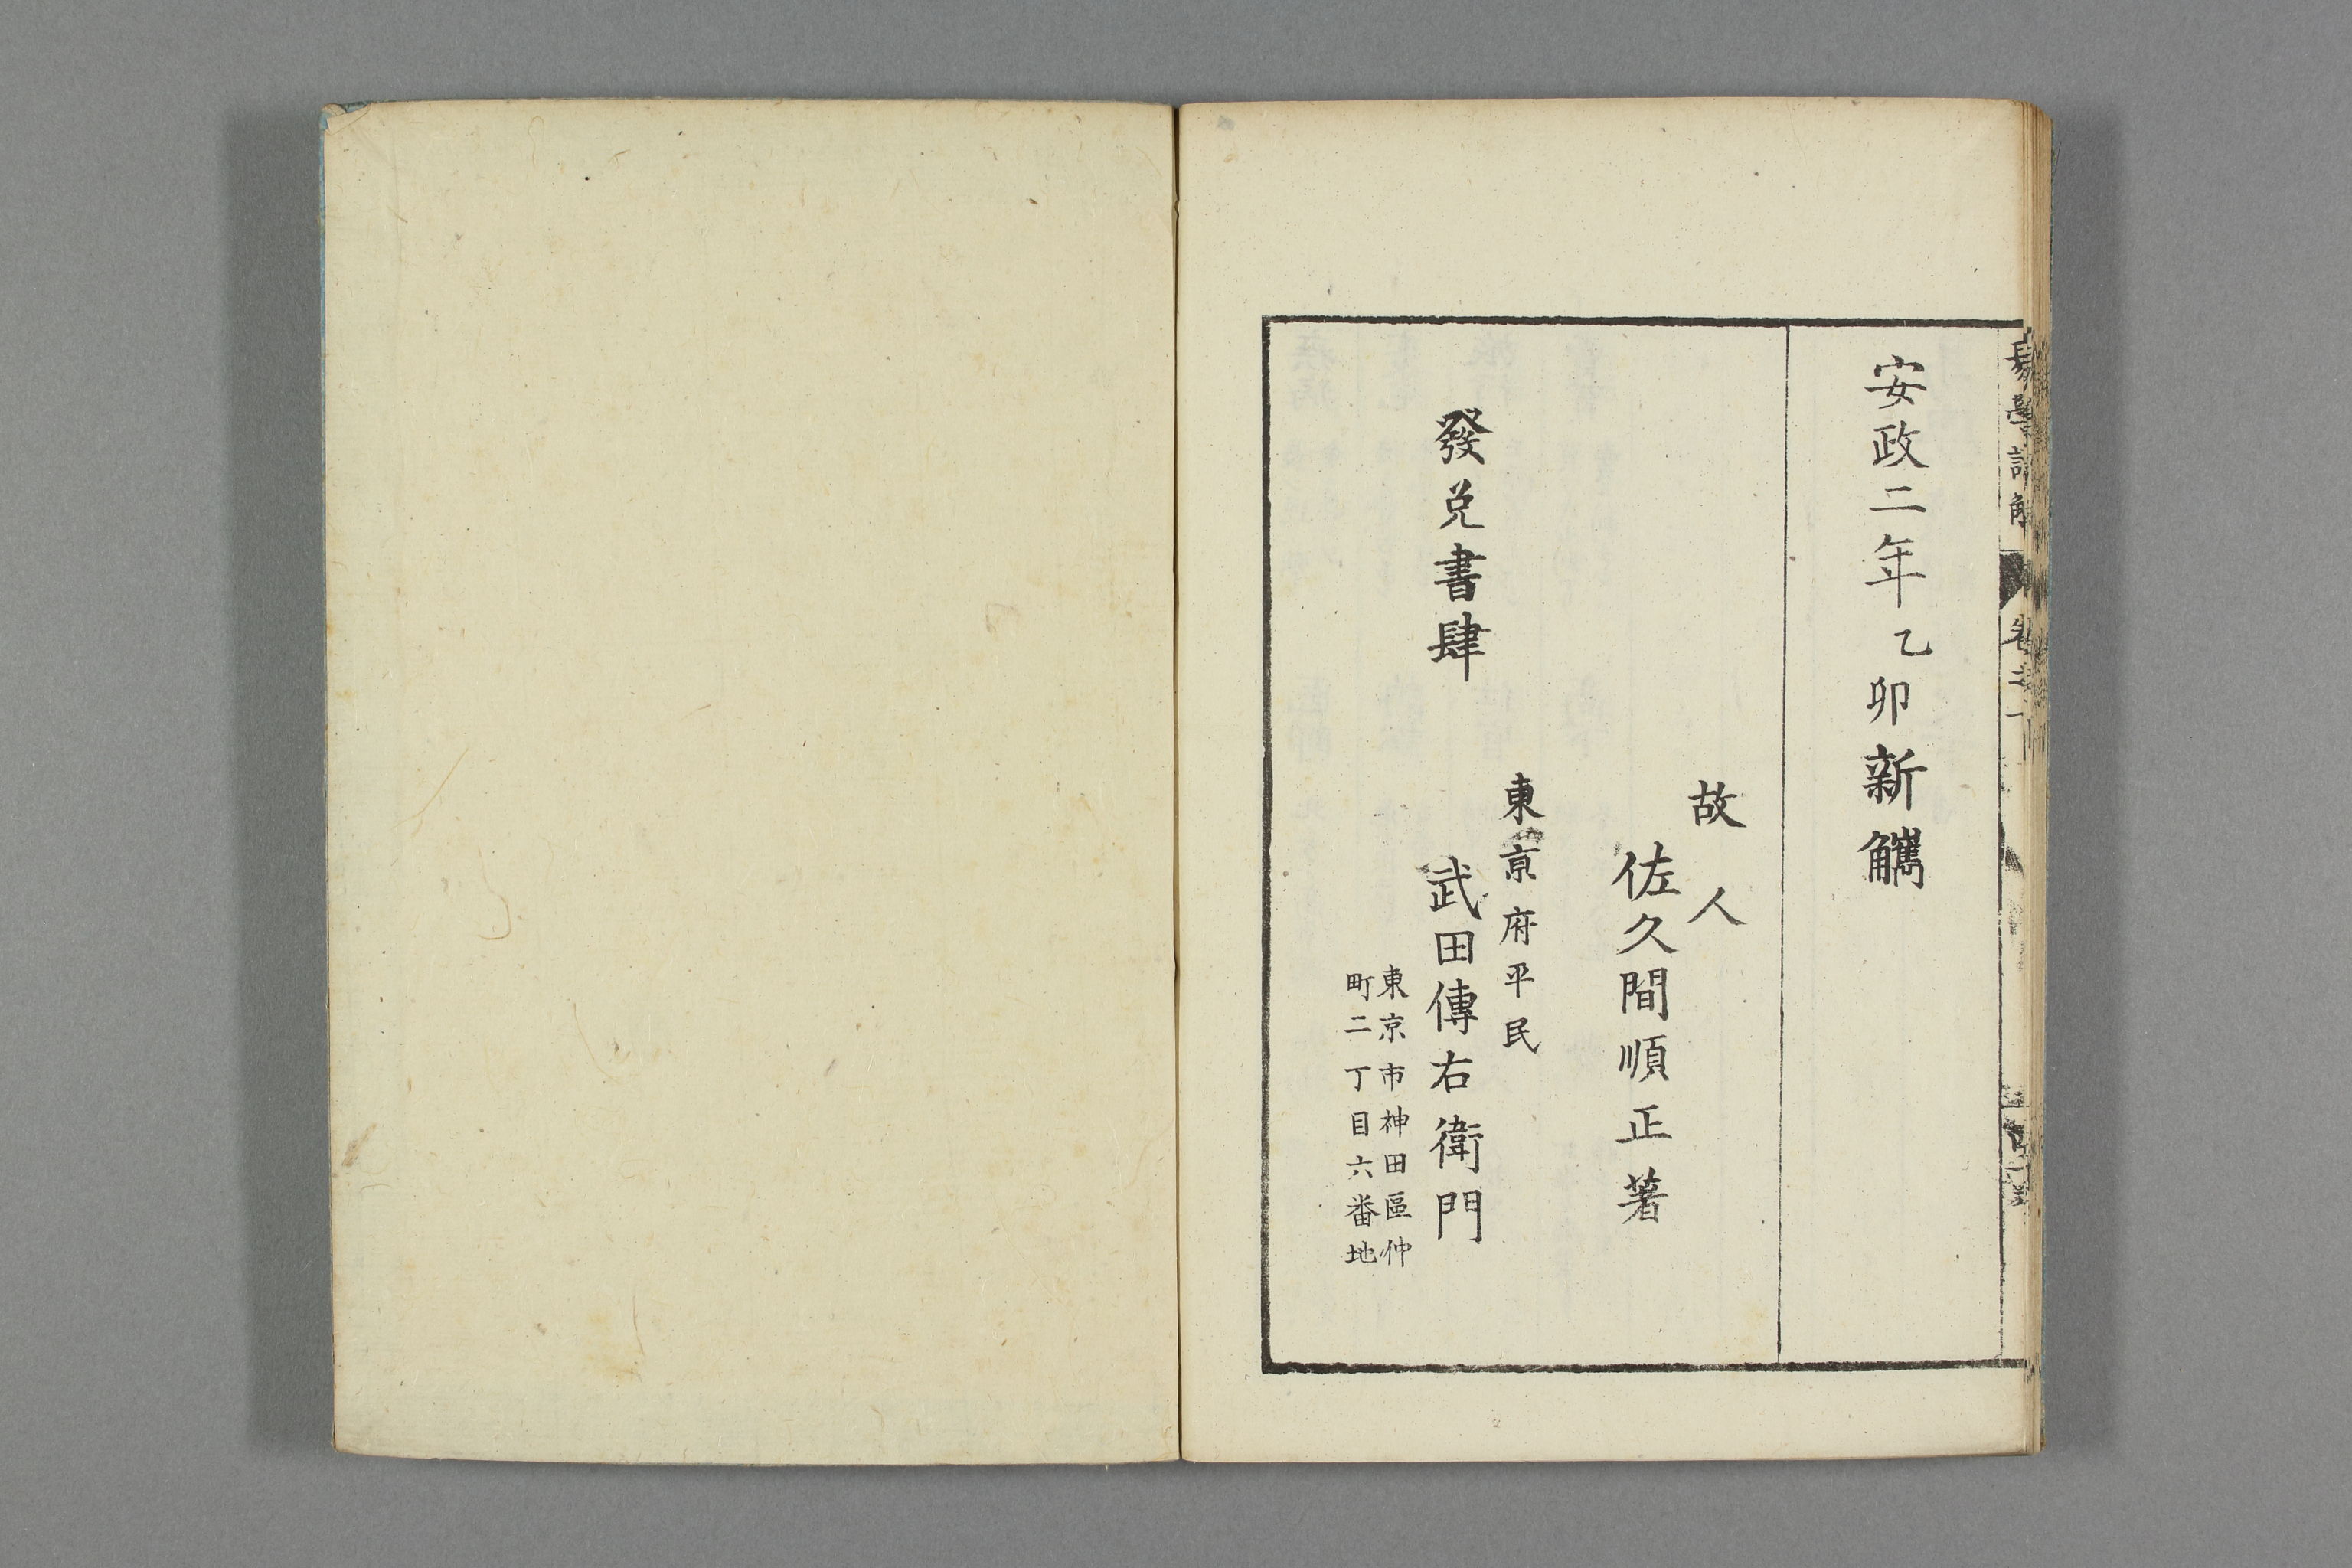 安政二年乙卯新鐫
故人
佐久間順正著
東京府平民
發兌書肆
武田傳右衛門
東京市神田區仲
町二丁目六番地